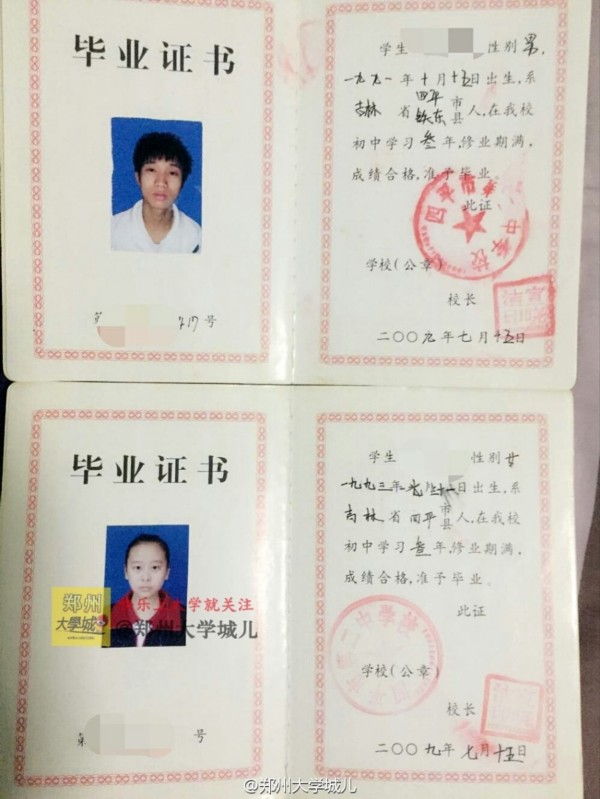 毕业证书
第 号
学生 性别男,
一九九一年十月十五日出生,系
吉林省四平铁东市县人,在我校
初中学习叁年,修业期满,
成绩合格,准予毕业。
此证
学校(公章)
校长
二〇〇九年七月十五日
毕业证书
郑州
大學城
乐 学就关注
@郑州大学城儿
第 号
学生 性别女
一九九三年 月二十一日出生,系
吉林省四平市县人,在我校
初中学习叁年,修业期满,
成绩合格,准予毕业。
此证
二中学校
学校(公章)
校长
二〇〇九年七月十五日
@郑州大学城儿